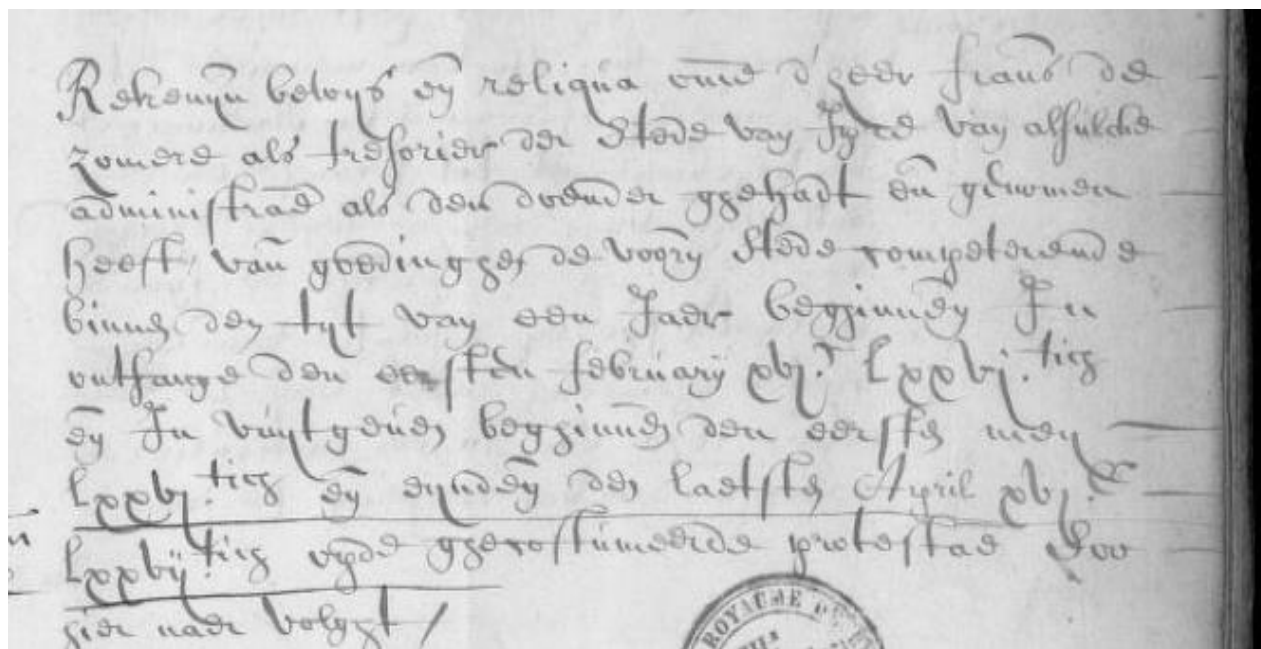 Rekenyn bewys eñ reliqua omē d'heer Frans de
zomere als tresorier der Stede van Ypre van alsulcke
administraē als den voernder ghehadt eñ genomen
heeft / van goedinghen de voorn Stede competerende
binnen den tyt van een Jaer beghinnen In
ontfange den eersten february xvj.c lxxvj.tich
eñ In uuytgeven beghinnen den eersten mey
lxxvj.tich eñ eynden den laetsten April xvj.c
lxxvij.tich ghecostumeerde protestaē
hier naer volght /
ROYAUME